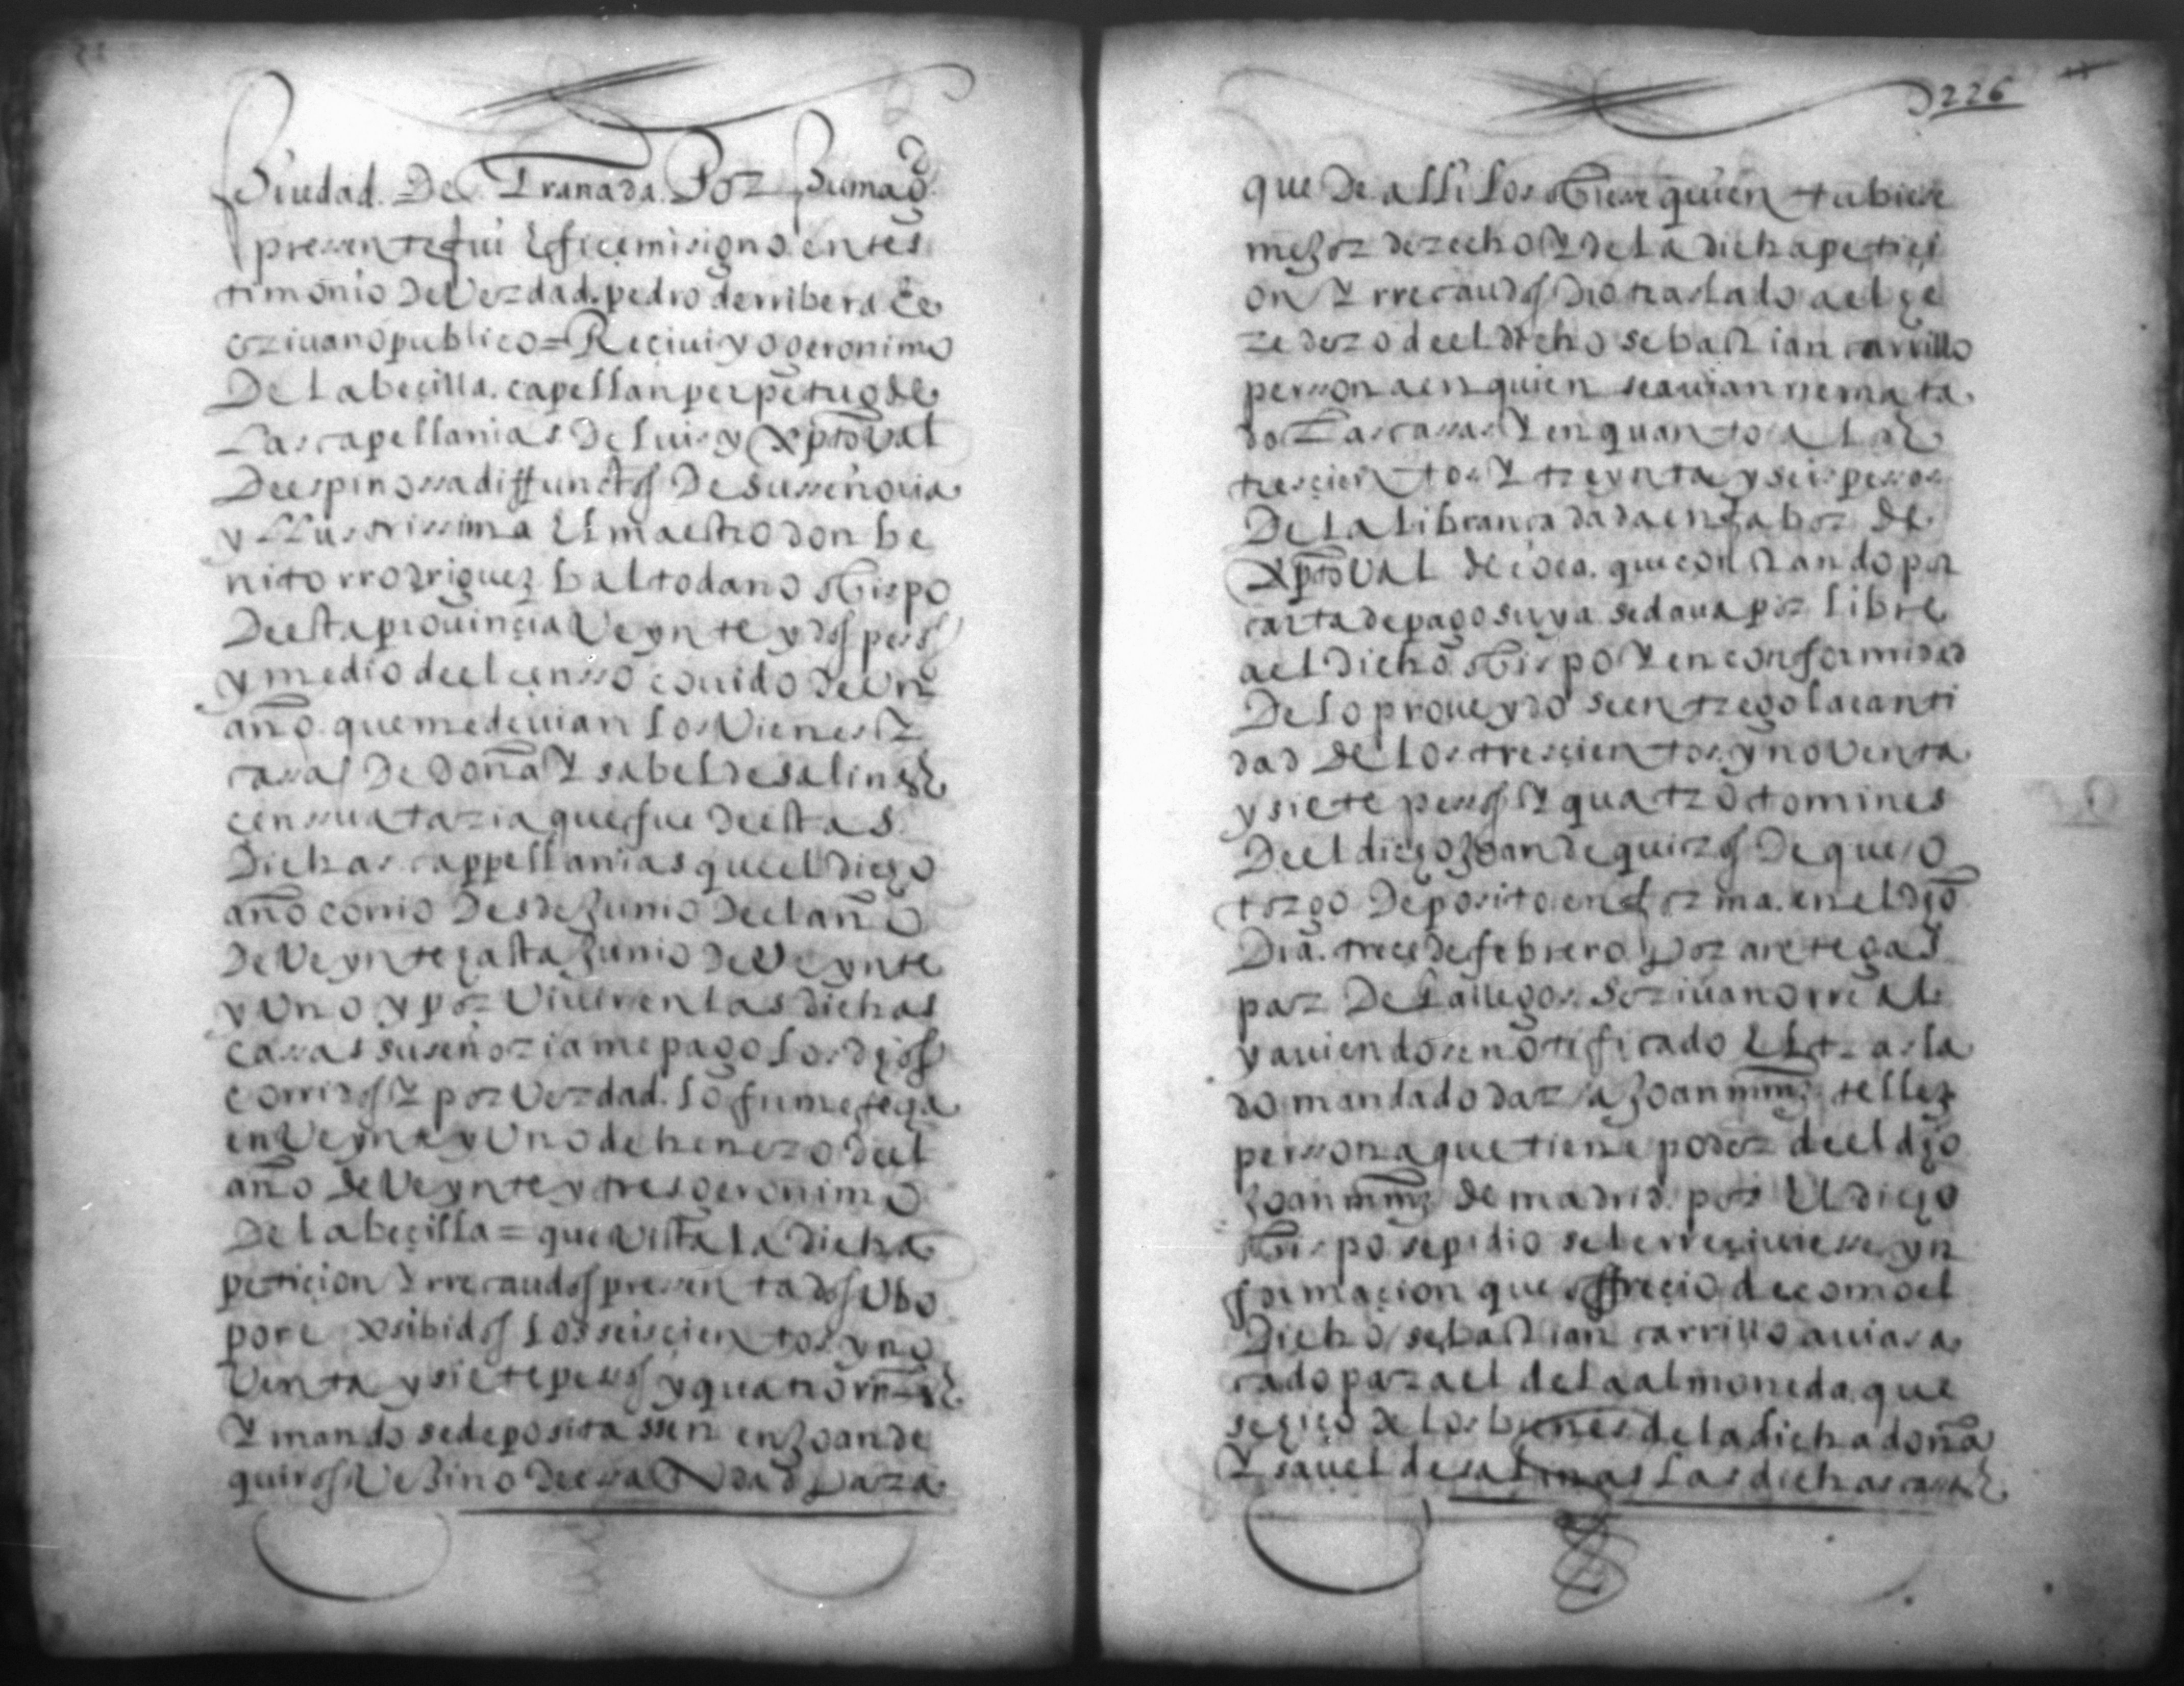 Ciudad. De Granada. Por Su magd
pressente fui E fice mi signo. en tes
timonio de Verdad. pedro de rribera es
criuano publico = Reciui yo geronimo
De la beçilla. capellan perpetuo de
Las capellanias De luis y Xpoual
De espinossa diffunctos De su senoria
yllustrissima El maestro don be
nito rrodriguez baltodano obispo
De esta prouinçia Veynte y dos pessos
y medio de el censso corrido de Un
año. que me deuian los Vienes Y
cassas De doña Ysabel de salinas
censsuataria que fue de estas
Dichas cappellanias que el dicho
año corrio Desde Junio de el año
De Veynte hasta Junio de Veynte
y Uno y por Viuir en las dichas
cassas su señoria me pago los dhos
corridos Y por Verdad. lo firme fecha
en Veynte y Uno de henero de el
año de Veynte y tres geronimo
De la beçilla = que vista la dicha
petiçion Y rrecaudos pressentados Ubo
por exsibidos los seisçientos y no
Venta y siete pessos y quatro rrs
Y mando se depositassen en Joan de
quiros Vezino de essa Ciudad Para
226
que De alli los obiese quien tubiese
mejor derecho Y de la dicha petiçi
on Y rrecaudos dio traslado a el he
redero de el dicho sebastian carrillo
perssona en quien se auian rremata
do Las cassas Y en quanto a los
tresçientos Y treynta y seis pessos
De la librança dada en fabor de
Xpoual de roca. que constando por
carta de pago suya se daua por libre
a el dicho obispo Y en conformidad
De lo proueydo se entrego la canti
dad de los tresçientos y noventa
y siete pessos Y quatro tomines
De el dicho Joan de quiros De que se o
torgo Deposito en forma. en el dho
Dia. treçe de febrero Por ante gas
par De Gallegos Scriuano rreal
y auiendose notificado El trasla
do mandado dar a Joan mrnz tellez
perssona que tiene poder de el dho
Joan mrnz de madrid. por El dicho
obispo se pidio se le rreçiuiesse yn
formaçion que offreçio de como el
Dicho sebastian carrillo auia sa
cado para el de la almoneda que
se hiço de los bienes de la dicha doña
Ysauel de salinas las dichas cassas